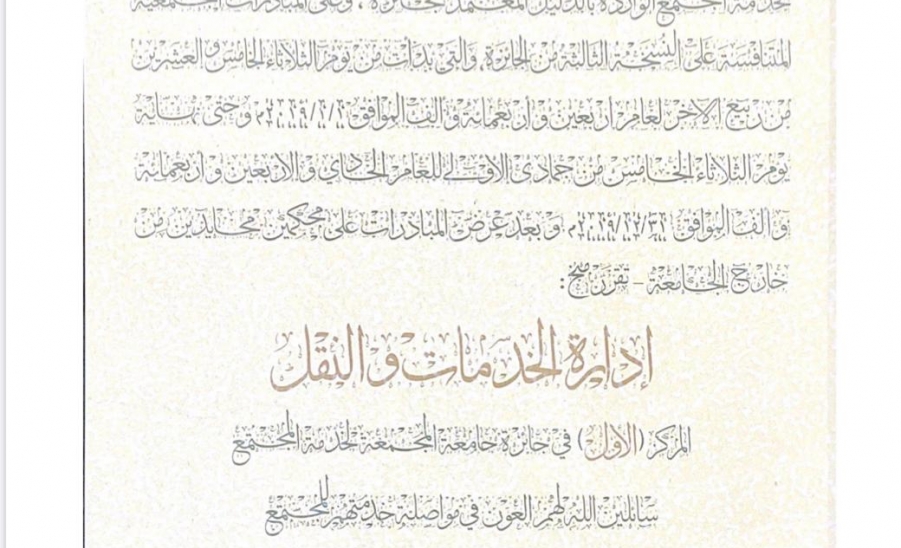 لخدمة المجتمع الواردة بالدليل المعتمد للجائزة، وعلى المبادرات المجتمعية
المتنافسة على النسخة الثالثة من الجائزة، والتي بدأت من يوم الثلاثاء الخامس والعشرين
من ربيع الآخر لعام أربعين وأربعمائة وألف الموافق ٢٠١٩/١/١م وحتى نهاية
يوم الثلاثاء الخامس من جمادى الأولى للعام الحادي والأربعين وأربعمائة
وألف الموافق ٢٠١٩/١٢/٣١م، وبعد عرض المبادرات على محكمين محايدين من
خارج الجامعة - تقرر منح:
إدارة الخدمات والنقل
المركز (الأول) في جائزة جامعة المجمعة لخدمة المجتمع
سائلين الله لهم العون في مواصلة خدمتهم للمجتمع